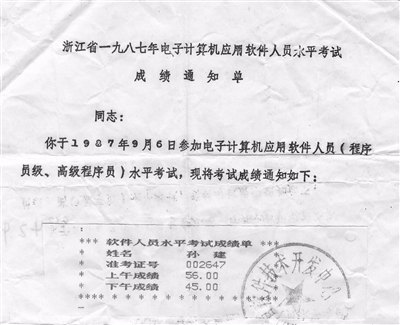 浙江省一九八七年电子计算机应用软件人员水平考试
成绩通知单
同志:
你于1987年9月6日参加电子计算机应用软件人员(程序
员级、高级程序员)水平考试,现将考试成绩通知如下:
*** 软件人员水平考试成绩单 ***
* 姓名 孙 建 *
* 准考证号 002647 *
* 上午成绩 56.00 *
* 下午成绩 45.00 *
技术开发中心